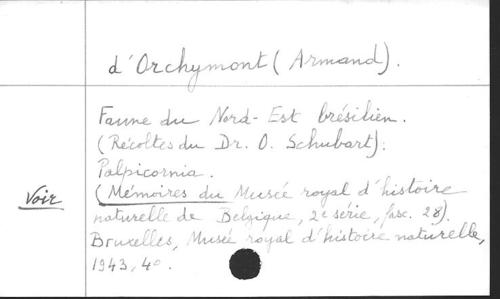 d'Orchymont (Armand).
Faune du Nord-Est brésilien.
(Récoltes du Dr. O. Schubart).
Palpicornia.
Voir
(Mémoires du Musée royal d'histoire
naturelle de Belgique, 2e série, fasc. 28).
Bruxelles, Musée royal d'histoire naturelle,
1943, 4o.